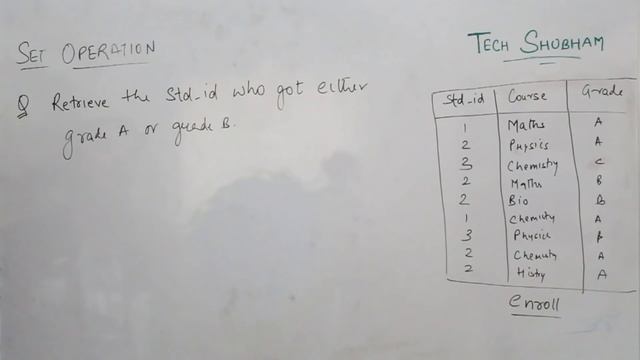 SET OPERATION
TECH SHUBHAM
Q Retrieve the Std_id who got either
grade A or grade B.
Std_id Course Grade
1 Maths A
2 Physics A
3 Chemistry C
2 Maths B
2 Bio B
1 Chemisty A
3 Physics
2 Chemisty A
2 Histry A
enroll